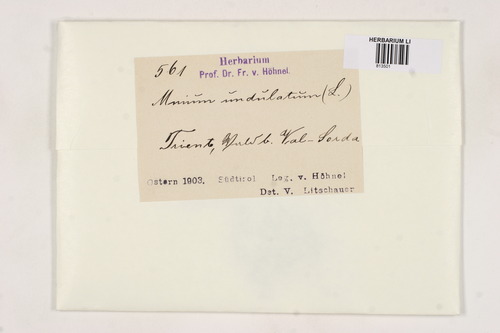 HERBARIUM LI
813501
Herbarium
Prof. Dr. Fr. v. Höhnel.
561
Mnium undulatum (L.)
Trient, Wald b. Val-Sorda
Ostern 1903. Südtirol Leg. v. Höhnel
Det. V. Litschauer